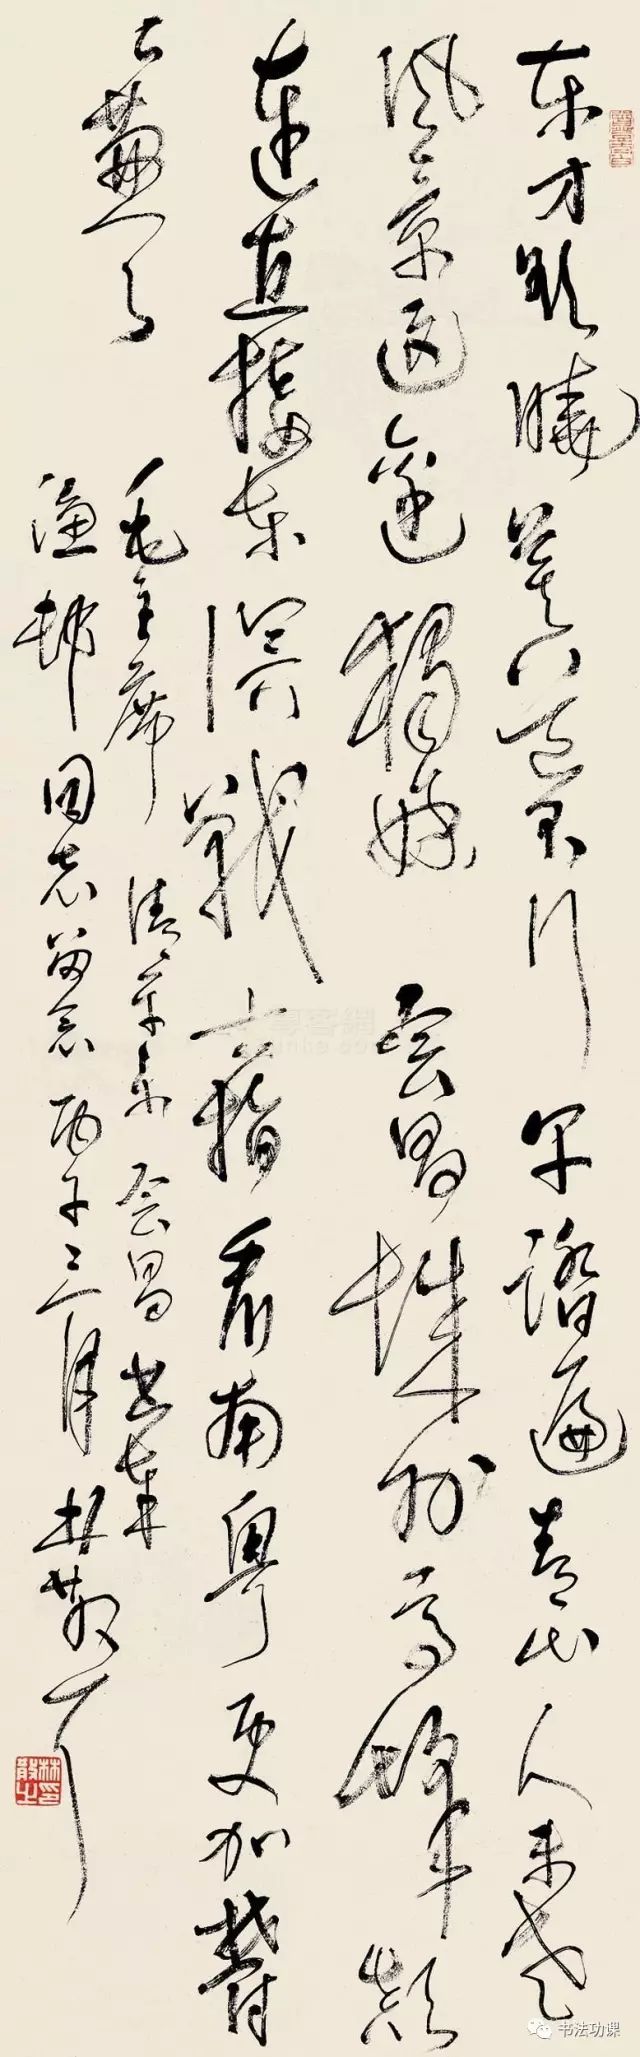 东方欲曉莫道君行早踏遍青山人未老
风景这邊獨好会昌城外高峰颠
連直接东溟戰士指看南粤更加鬱
々蔥々
毛主席清平乐会昌书奉
渔邨同志留念丙午三月林散耳
林散之印
书法功课